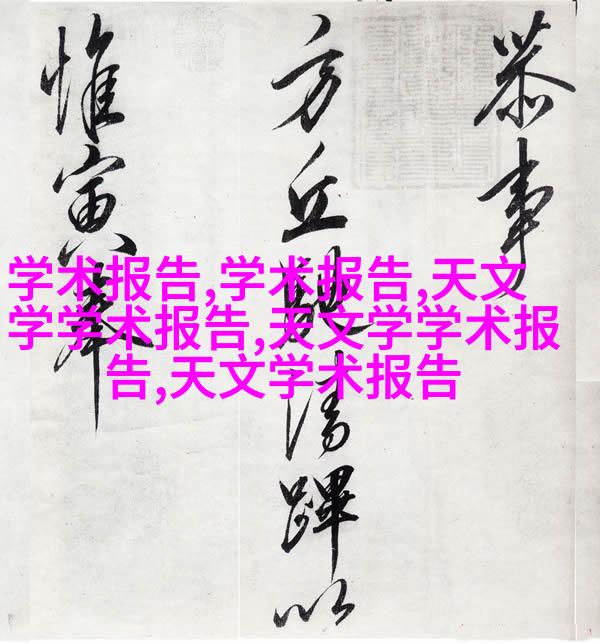 恭事
方丘清蹕以
惟寅奉
学术报告,学术报告,天文
学学术报告,天文学学术报
告,天文学术报告